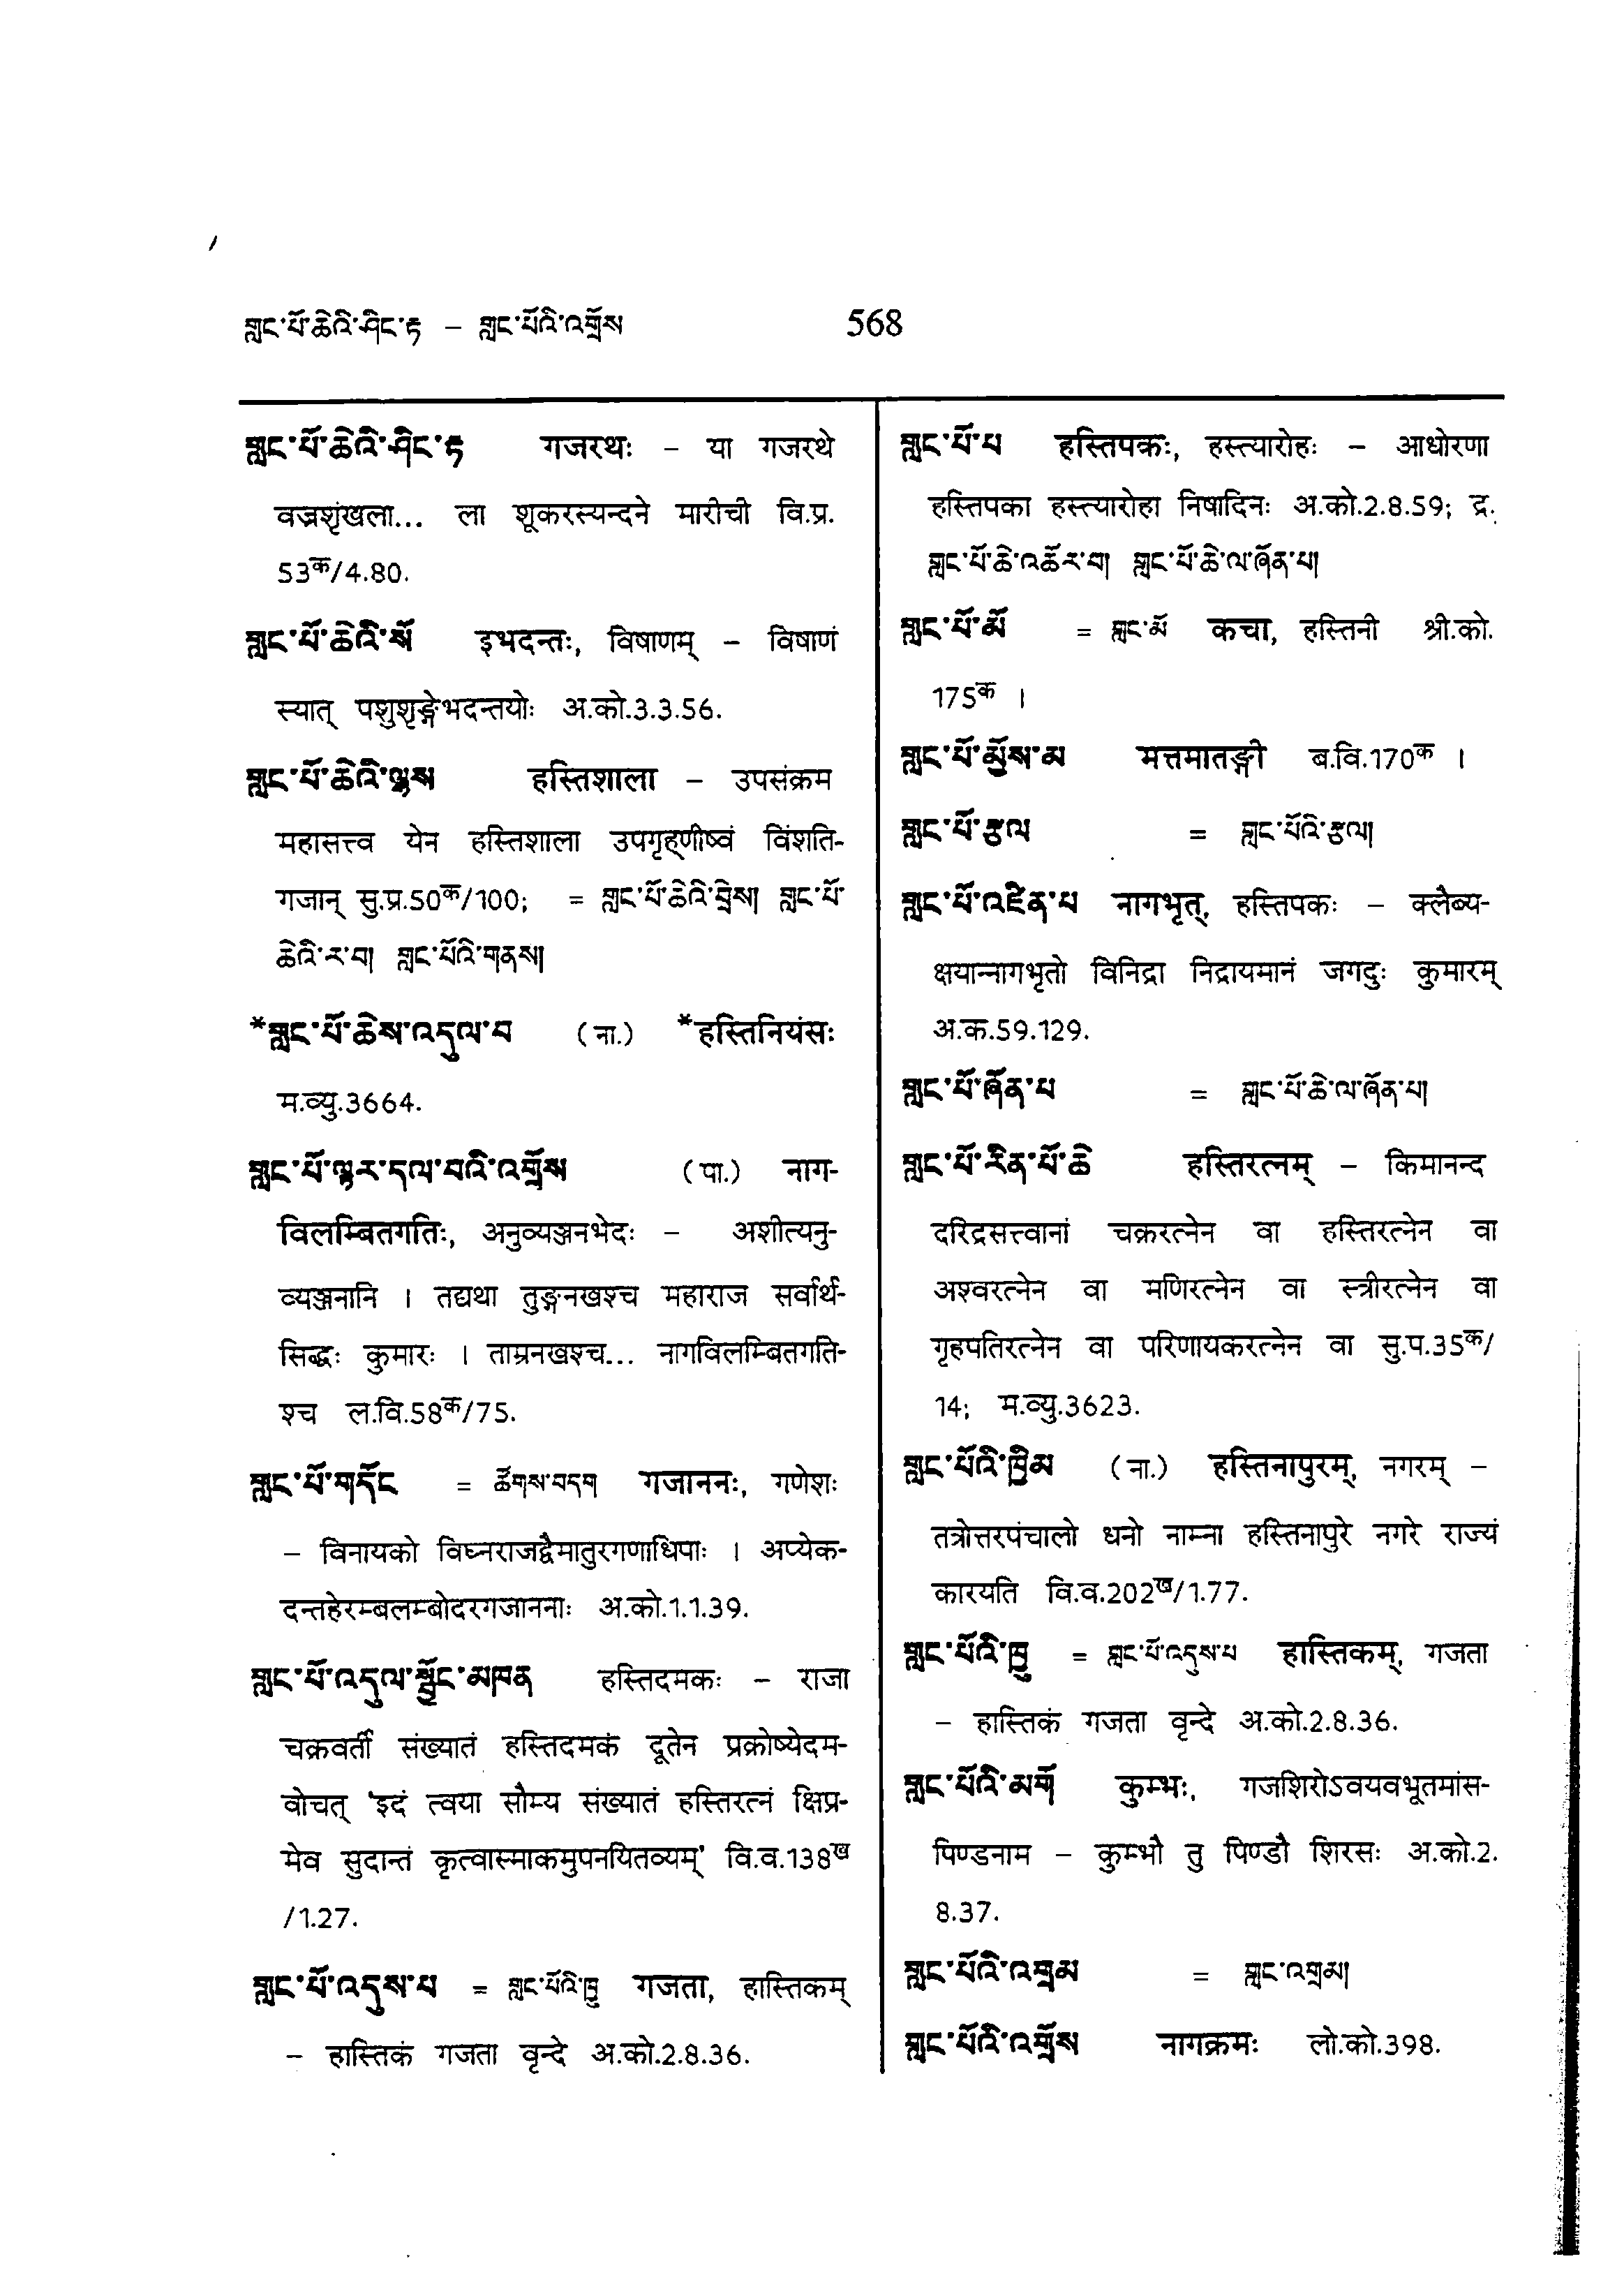 གླང་པོ་ཆེའི་ཤིང་རྟ – གླང་པོའི་འགྲོས
568
གླང་པོ་ཆེའི་ཤིང་རྟ गजरथः – या गजरथे
वज्रशृंखला... ला शूकरस्यन्दने मारीची वि.प्र.
53क/4.80.
གླང་པོ་ཆེའི་སོ इभदन्तः, विषाणम् – विषाणं
स्यात् पशुशृङ्गेभदन्तयोः अ.को.3.3.56.
གླང་པོ་ཆེའི་ལྷས हस्तिशाला – उपसंक्रम
महासत्त्व येन हस्तिशाला उपगृह्णीष्वं विंशति-
गजान् सु.प्र.50क/100; = གླང་པོ་ཆེའི་བྲེས། གླང་པོ་
ཆེའི་ར་བ། གླང་པོའི་གནས།
*གླང་པོ་ཆེས་འདུལ་བ (ना.) *हस्तिनियंसः
म.व्यु.3664.
གླང་པོ་ལྟར་དལ་བའི་འགྲོས (पा.) नाग-
विलम्बितगतिः, अनुव्यञ्जनभेदः – अशीत्यनु-
व्यञ्जनानि । तद्यथा तुङ्गनखश्च महाराज सर्वार्थ-
सिद्धः कुमारः । ताम्रनखश्च... नागविलम्बितगति-
श्च ल.वि.58क/75.
གླང་པོ་གདོང = ཚོགས་བདག गजाननः, गणेशः
– विनायको विघ्नराजद्वैमातुरगणाधिपाः । अप्येक-
दन्तहेरम्बलम्बोदरगजाननाः अ.को.1.1.39.
གླང་པོ་འདུལ་སྦྱོང་མཁན हस्तिदमकः – राजा
चक्रवर्ती संख्यातं हस्तिदमकं दूतेन प्रक्रोष्येदम-
वोचत् 'इदं त्वया सौम्य संख्यातं हस्तिरत्नं क्षिप्र-
मेव सुदान्तं कृत्वास्माकमुपनयितव्यम्' वि.व.138ख
/1.27.
གླང་པོ་འདུས་པ = གླང་པོའི་ཁྱུ गजता, हास्तिकम्
– हास्तिकं गजता वृन्दे अ.को.2.8.36.
གླང་པོ་པ हस्तिपकः, हस्त्यारोहः – आधोरणा
हस्तिपका हस्त्यारोहा निषादिनः अ.को.2.8.59; द्र.
གླང་པོ་ཆེ་འཚོར་བ། གླང་པོ་ཆེ་ལ་ཞོན་པ།
གླང་པོ་མོ = གླང་མོ कचा, हस्तिनी श्री.को.
175क ।
གླང་པོ་མྱོས་མ मत्तमातङ्गी ब.वि.170क ।
གླང་པོ་རྩལ = གླང་པོའི་རྩལ།
གླང་པོ་འཛིན་པ नागभृत्, हस्तिपकः – क्लैब्य-
क्षयान्नागभृतो विनिद्रा निद्रायमानं जगदुः कुमारम्
अ.क.59.129.
གླང་པོ་ཞོན་པ = གླང་པོ་ཆེ་ལ་ཞོན་པ།
གླང་པོ་རིན་པོ་ཆེ हस्तिरत्नम् – किमानन्द
दरिद्रसत्त्वानां चक्ररत्नेन वा हस्तिरत्नेन वा
अश्वरत्नेन वा मणिरत्नेन वा स्त्रीरत्नेन वा
गृहपतिरत्नेन वा परिणायकरत्नेन वा सु.प.35क/
14; म.व्यु.3623.
གླང་པོའི་ཁྱིམ (ना.) हस्तिनापुरम्, नगरम् –
तत्रोत्तरपंचालो धनो नाम्ना हस्तिनापुरे नगरे राज्यं
कारयति वि.व.202ख/1.77.
གླང་པོའི་ཁྱུ = གླང་པོ་འདུས་པ हास्तिकम्, गजता
– हास्तिकं गजता वृन्दे अ.को.2.8.36.
གླང་པོའི་མགོ कुम्भः, गजशिरोऽवयवभूतमांस-
पिण्डनाम – कुम्भौ तु पिण्डौ शिरसः अ.को.2.
8.37.
གླང་པོའི་འགྲམ = གླང་འགྲམ།
གླང་པོའི་འགྲོས नागक्रमः लो.को.398.